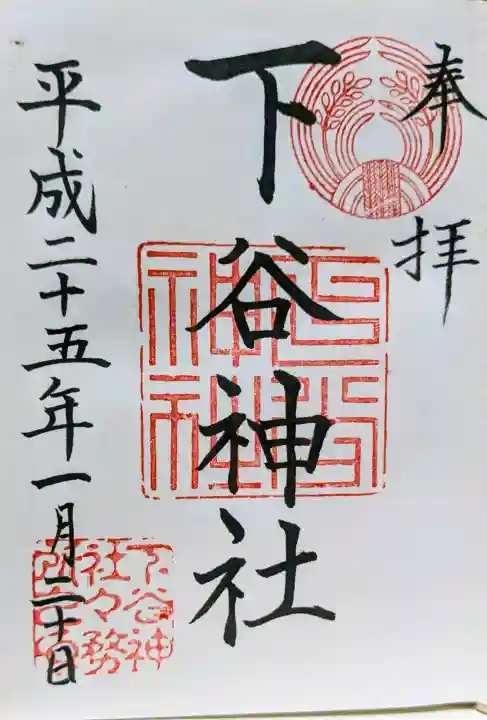 奉拝
下谷神社
平成二十五年一月二十日
下谷神
社々務
所之印